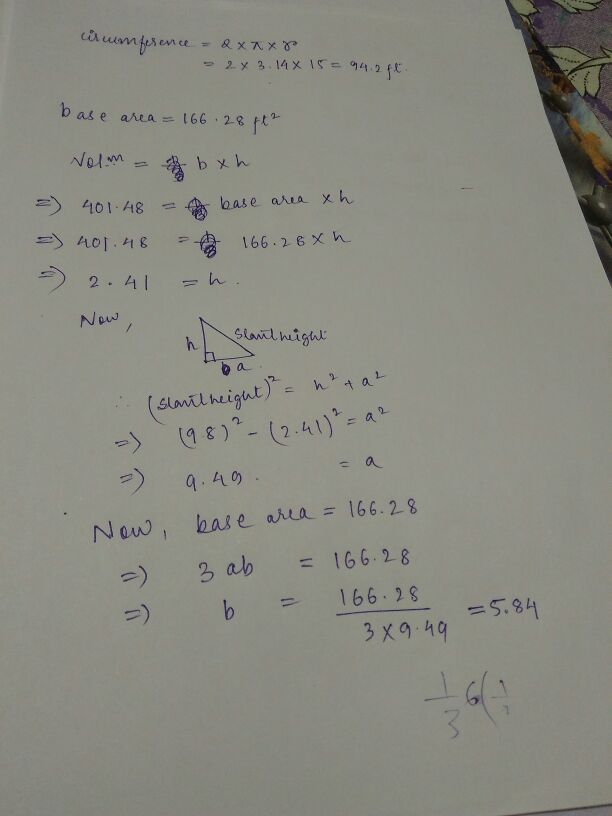 circumference = 2 × π × r
= 2 × 3.14 × 15 = 94.2 ft.
base area = 166.28 ft²
Vol.m = b × h
=> 401.48 = base area × h
=> 401.48 = 166.28 × h
=> 2.41 = h.
Now,
h
slant height
a
∴ (slant height)² = h² + a²
=> (9.8)² - (2.41)² = a²
=> 9.49. = a
Now, base area = 166.28
=> 3 ab = 166.28
=> b = 166.28 / 3 × 9.49 = 5.84
1/3 6(